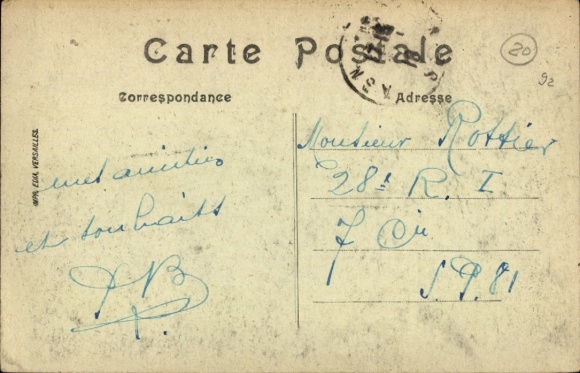 Carte Postale
20
92
Correspondance
Adresse
IMP. EDIA, VERSAILLES.
mes amitiés
et souhaits
P B
Monsieur Rottier
28e R. I
7 Cie
S. P. 81